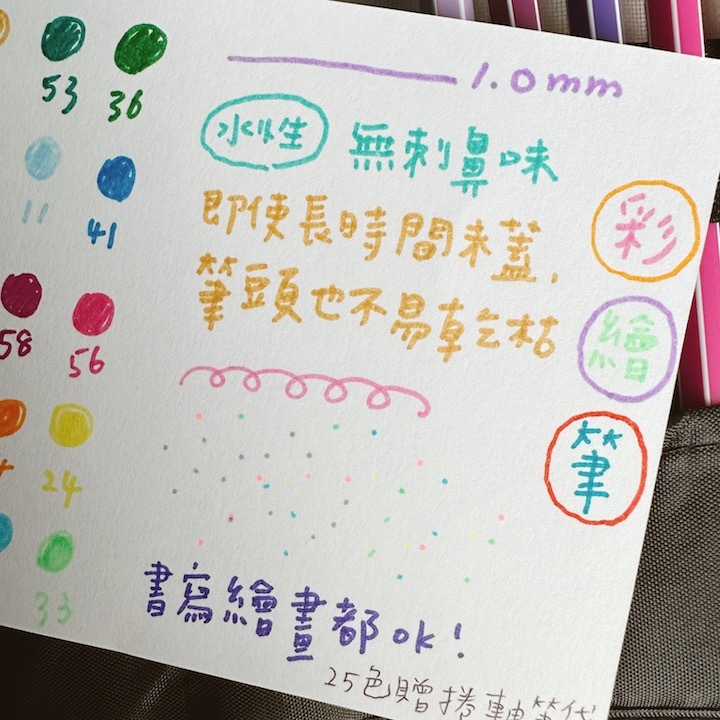 53 36
1.0mm
水性 無刺鼻味
11 41
即使長時間未蓋,
筆頭也不易乾枯
彩
繪
筆
58 56
24
33
書寫繪畫都ok!
25色贈捲軸筆袋